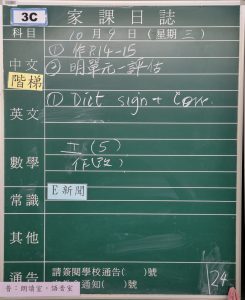 3C
家課日誌
科目 10月9日(星期三)
中文 ① 作P.14-15
② 明單元一評估
階梯
英文 ① Dict sign + Corr.
數學 (5)
作
常識 E新聞
其他
通告 請簽閱學校通告( )號
通知( )號
24